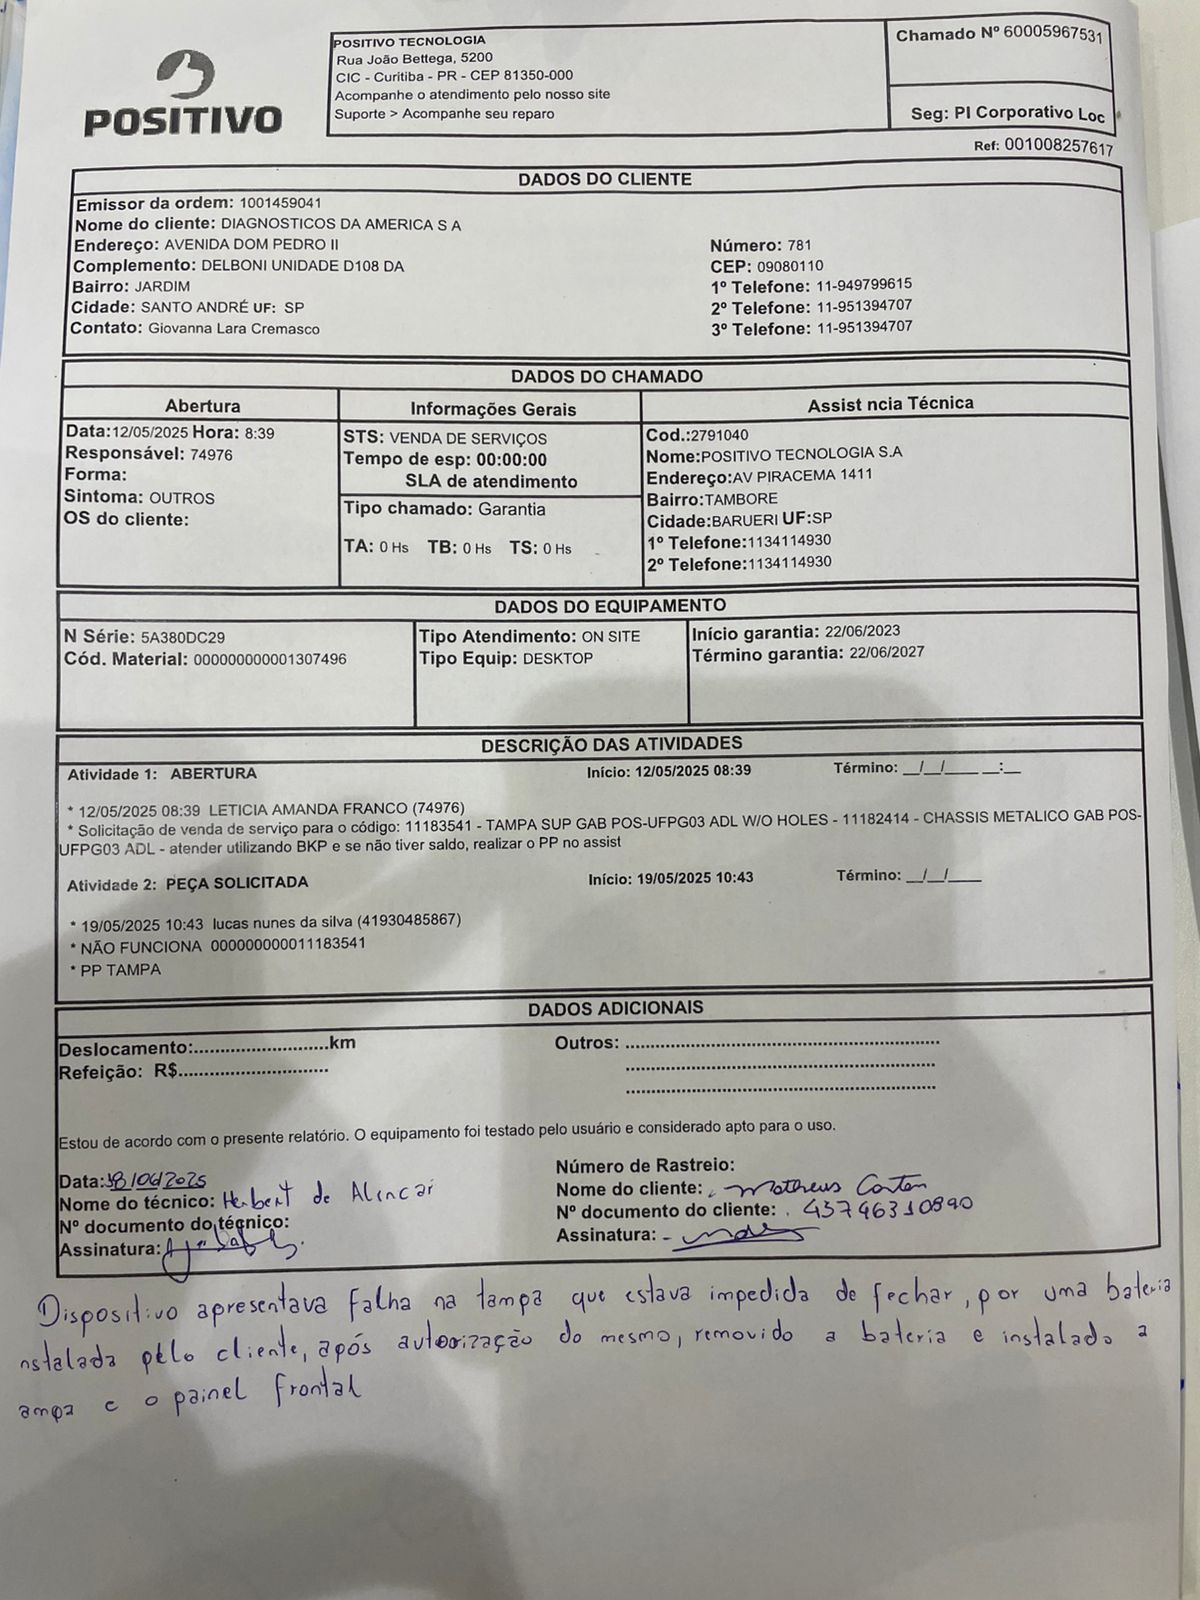 POSITIVO
POSITIVO TECNOLOGIA
Rua João Bettega, 5200
CIC - Curitiba - PR - CEP 81350-000
Acompanhe o atendimento pelo nosso site
Suporte > Acompanhe seu reparo
Chamado Nº 60005967531
Seg: PI Corporativo Loc
Ref: 001008257617
DADOS DO CLIENTE
Emissor da ordem: 1001459041
Nome do cliente: DIAGNOSTICOS DA AMERICA S A
Endereço: AVENIDA DOM PEDRO II
Número: 781
Complemento: DELBONI UNIDADE D108 DA
CEP: 09080110
Bairro: JARDIM
1º Telefone: 11-949799615
Cidade: SANTO ANDRÉ UF: SP
2º Telefone: 11-951394707
Contato: Giovanna Lara Cremasco
3º Telefone: 11-951394707
DADOS DO CHAMADO
Abertura
Data:12/05/2025 Hora: 8:39
Responsável: 74976
Forma:
Sintoma: OUTROS
OS do cliente:
Informações Gerais
STS: VENDA DE SERVIÇOS
Tempo de esp: 00:00:00
SLA de atendimento
Tipo chamado: Garantia
TA: 0 Hs TB: 0 Hs TS: 0 Hs
Assist ncia Técnica
Cod.:2791040
Nome:POSITIVO TECNOLOGIA S.A
Endereço:AV PIRACEMA 1411
Bairro:TAMBORE
Cidade:BARUERI UF:SP
1º Telefone:1134114930
2º Telefone:1134114930
DADOS DO EQUIPAMENTO
N Série: 5A380DC29
Cód. Material: 000000000001307496
Tipo Atendimento: ON SITE
Tipo Equip: DESKTOP
Início garantia: 22/06/2023
Término garantia: 22/06/2027
DESCRIÇÃO DAS ATIVIDADES
Atividade 1: ABERTURA Início: 12/05/2025 08:39 Término: __/__/____ __:__
* 12/05/2025 08:39 LETICIA AMANDA FRANCO (74976)
* Solicitação de venda de serviço para o código: 11183541 - TAMPA SUP GAB POS-UFPG03 ADL W/O HOLES - 11182414 - CHASSIS METALICO GAB POS-
UFPG03 ADL - atender utilizando BKP e se não tiver saldo, realizar o PP no assist
Atividade 2: PEÇA SOLICITADA Início: 19/05/2025 10:43 Término: __/__/____
* 19/05/2025 10:43 lucas nunes da silva (41930485867)
* NÃO FUNCIONA 000000000011183541
* PP TAMPA
DADOS ADICIONAIS
Deslocamento:.........................km
Outros: ....................................................
Refeição: R$...........................
....................................................
....................................................
Estou de acordo com o presente relatório. O equipamento foi testado pelo usuário e considerado apto para o uso.
Data:18/06/2025
Nome do técnico: Herbert de Alincar
Nº documento do técnico:
Assinatura:
Número de Rastreio:
Nome do cliente: Matheus
Nº documento do cliente: 43796310890
Assinatura:
Dispositivo apresentava falha na tampa que estava impedida de fechar, por uma bateria
nstalada pelo cliente, após autorização do mesmo, removido a bateria e instalado a
ampa e o painel frontal